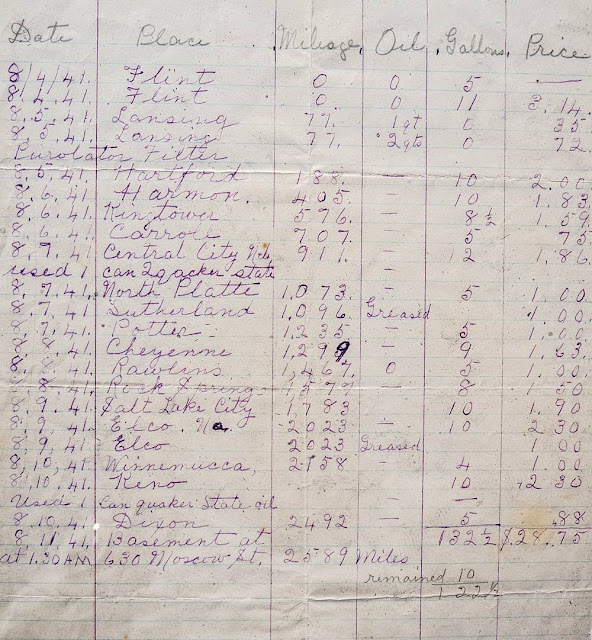 Date Place Mileage. Oil. Gallons. Price.
8/4/41. Flint 0 0 5 —
8/4.41. Flint 0 0 11 3.14.
8.5.41. Lansing 77. 1 qt 0 35
8.5.41. Lansing 77. 2 qts 0 72
Purolator Filter
8.5.41. Hartford 188. — 10 2.00.
8.6.41 Harmon. 405. — 10 1.83
8.6.41 576. — 8½ 1.59
8.6.41 Carroll 707. — 5 75
8.7.41 Central City Neb 911. — 12 1.86
used 1 can Quacker state —
8.7.41. North Platte 1,073. — 5 1.00
8.7.41 Sutherland 1,096. Greased 1.00.
8.7.41. Potter 1,235. — 5 1.00
8.8.41. Cheyenne 1,299 — 9 1.63.
8.8.41. Rawlins. 1,467. 0 5 1.00.
8.8.41. Rock Springs 1577 — 8 1.50
8.9.41. Salt Lake City 1,783 10 1.90
8.9.41. Elco. Na. 2023 — 10 2.30
8.9.41 Elco 2023 Greased 1.00
8.10.41 Winnemucca, 2158 — 4 1.00
8.10.41. Reno 10 2.30
Used 1 can quaker State oil — —
8.10.41 Dixon 2492 — 5 .88
8.11.41. Basement at 132½ $.28.75
at 1.30 AM 630 Moscow St. 2589 Miles
remained 10
122½